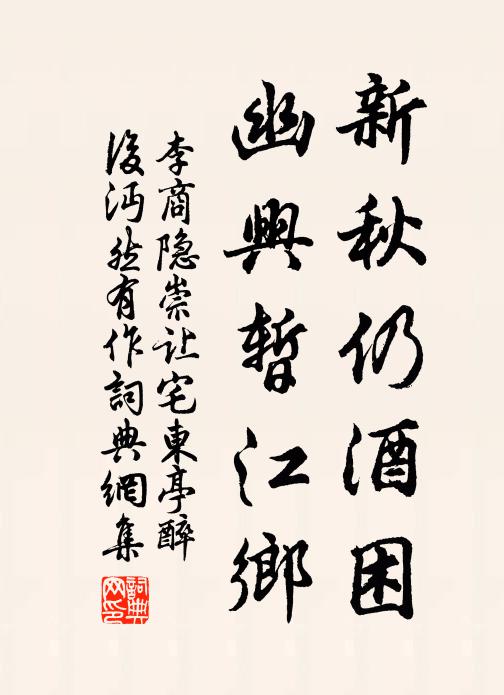 新秋仍酒困
幽興暫江鄉
李商隐崇让宅東亭醉
後沔然有作詞典網集
詞典網印